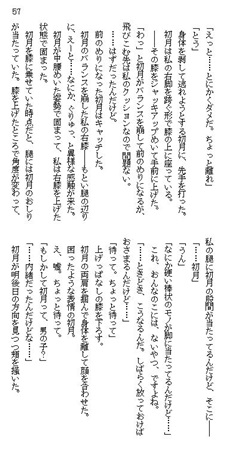 57
「えっと……とにかくダメだ。ちょっと離れ」
「とう」
身体を剥して逃れようとする初月に、先手を打った。
初月は今、私の右脚を跨ぐ形で膝の上に座っている。
――その膝をジャッキアップめいて手前に上げた。
「わっ」初月がバランスを崩して前のめりになるが、
飛びこむ先は私のクッションなので問題ない。
……はずだったんだけど。
前のめりになった初月はキャッチした。
初月のバランスを崩した私の右膝――もしい腿の辺り
に、えーと……なにか、ぐりゅっ、と異様な感触が来た。
初月が中腰めいた姿勢で固まって、私は右膝を上げた
状態で固まった。
初月を膝に乗せていた時点だと、腿には初月のおしり
が当たっていた。膝を上げたところで角度が変わって、
私の腿に初月の股間が当たってるんだけど、そこに――
「……初月」
「うん」
「なにか硬い棒状のモノが腿に当たってるんだけど……
これ、おんなのこには、ないやつ、ですよね」
「……ときどき、こうなるんだ。しばらく放っておけば
おさまるんだけど……」
「待って。ちょっと待って」
上げっぱなしの膝を下ろす。
初月の両肩を掴んで身体を離して顔を合わせた。
困ったような表情の初月。
え、嘘、ちょっと待って。
「もしかして初月って、男の子？」
「……内緒だったんだけどな……」
初月が明後日の方向を見つつ頬を掻いた。